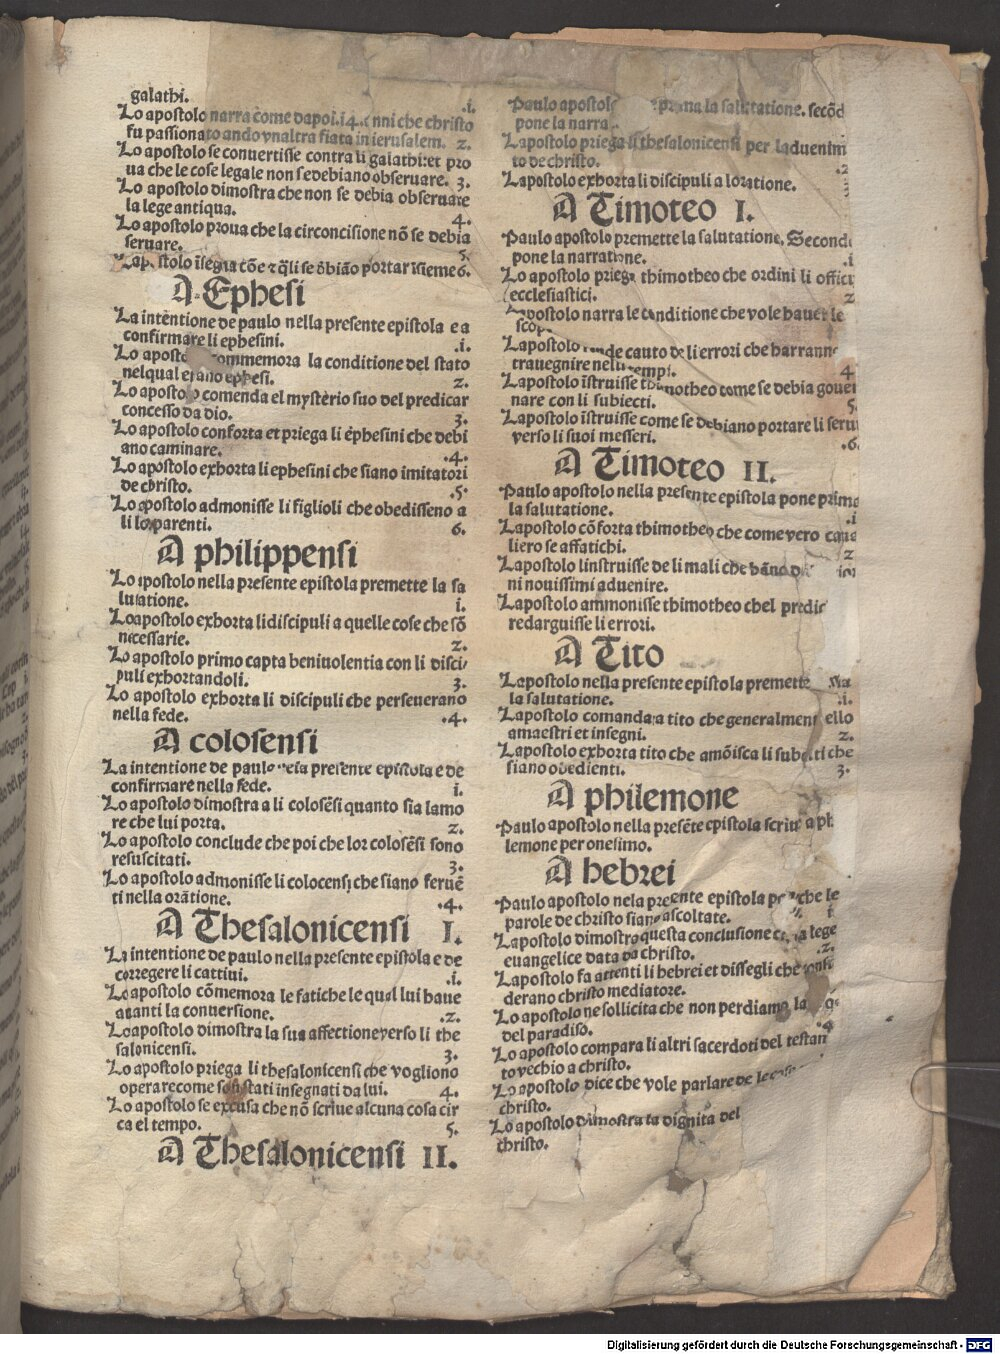 galathi. .i.
Lo apostolo narra come dapoi .i4. anni che christo
fu passionato ando vnaltra fiata in ierusalem. 2.
Lo apostolo se conuertisse contra li galathi: et pro
ua che le cose legale non se debiano obseruare. 3.
Lo apostolo dimostra che non se debia obseruare
la lege antiqua. 4.
Lo apostolo proua che la circoncisione nõ se debia
seruare. 5.
Lapostolo ĩsegna tõe q̃li se õbião portar ĩsieme 6.
A Ephesi
La intentione de paulo nella presente epistola e a
confirmare li ephesini. .i.
Lo apostolo commemora la conditione del stato
nelqual erano ephesi. 2.
Lo apostolo comenda el mysterio suo del predicar
concesso da dio. 3.
Lo apostolo conforta et priega li ephesini che debi
ano caminare. .4.
Lo apostolo exhorta li ephesini che siano imitatori
de christo. .5.
Lo apostolo admonisse li figlioli che obedisseno a
li lor parenti. 6.
A philippensi
Lo apostolo nella presente epistola premette la sa
lutatione. i.
Lo apostolo exhorta li discipuli a quelle cose che sõ
necessarie. 2.
Lo apostolo primo capta beniuolentia con li disci/
puli exhortandoli. 3.
Lo apostolo exhorta li discipuli che perseuerano
nella fede. .4.
A colosensi
La intentione de paulo nela presente epistola e de
confirmare nella fede. i.
Lo apostolo dimostra a li colosẽsi quanto sia lamo
re che lui porta. 2.
Lo apostolo conclude che poi che lor colosẽsi sono
resuscitati. 3.
Lo apostolo admonisse li colocensi che siano feruẽ
ti nella orãtione. .4.
A Thesalonicensi I.
La intentione de paulo nella presente epistola e de
corregere li cattiui. .i.
Lo apostolo cõmemora le fatiche le qual lui haue
auanti la conuersione. .2.
Lo apostolo dimostra la sua affectione verso li the
salonicensi. 3.
Lo apostolo priega li thesalonicensi che vogliono
operare come son stati insegnati da lui. 4.
Lo apostolo se excusa che nõ scriue alcuna cosa cir
ca el tempo. 5.
A Thesalonicensi II.
Paulo apostolo prima la salutatione. secõd
pone la narra
Lapostolo priega li thesalonicensi per laduenim
to de christo. .2
Lapostolo exhorta li discipuli a loratione. 3
A Timoteo I.
Paulo apostolo premette la salutatione. Second
pone la narratione. .i
Lo apostolo priega thimotheo che ordini li offici
ecclesiastici. 2
Lapostolo narra le conditione che vole hauer le
scop
Lapostolo rende cauto de li errori che harranno
trauegnire neli tempi. 4
Lapostolo ĩstruisse thimotheo come se debia gouer
nare con li subiecti. 5.
Lapostolo ĩstruisse come se debiano portare li serui
verso li suoi messeri. .6.
A Timoteo II.
Paulo apostolo nella presente epistola pone prima
la salutatione. .i
Lapostolo cõforta thimotheo che come vero caua
liero se affatichi. 2
Lapostolo linstruisse de li mali che hãno
ni nouissimi aduenire.
Lapostolo ammonisse thimotheo chel predic
redarguisse li errori.
A Tito
Lapostolo nella presente epistola premette
la salutatione. .i.
Lapostolo comanda a tito che generalment ello
amaestri et insegni. 2.
Lapostolo exhorta tito che amõisca li subiecti che
siano obedienti. 3.
A philemone
Paulo apostolo nella presẽte epistola scriue a ph
lemone per onesimo.
A hebrei
Paulo apostolo nela presente epistola che le
parole de christo siano ascoltate. i
Lapostolo dimostra questa conclusione lege
euangelice data da christo. .2.
Lapostolo fa attenti li hebrei et dissegli che consi
derano christo mediatore.
Lo apostolo ne sollicita che non perdiamo la
del paradiso. .4
Lo apostolo compara li altri sacerdoti del testam
to vechio a christo.
Lo apostolo dice che vole parlare de le cose
christo.
Lo apostolo dimostra la dignita del
christo.
Digitalisierung gefördert durch die Deutsche Forschungsgemeinschaft - DFG